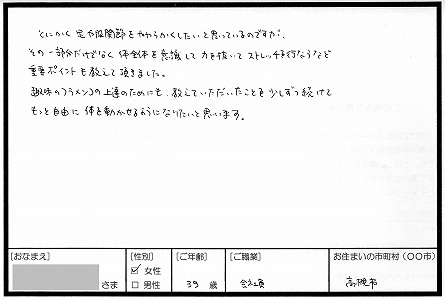 とにかく 足や股関節をやわらかくしたいと思っているのですが、
その一部分だけでなく 体全体を意識して力を抜いてストレッチを行なうなど
重要ポイントも教えて頂きました。
趣味のフラメンコの上達のためにも、教えていただいたことを少しずつ続けて
もっと自由に 体を動かせるようになりたいと思います。
[おなまえ] [性別] [ご年齢] [ご職業] お住まいの市町村(○○市)
さま ☑ 女性 □ 男性 39 歳 会社員 高槻市